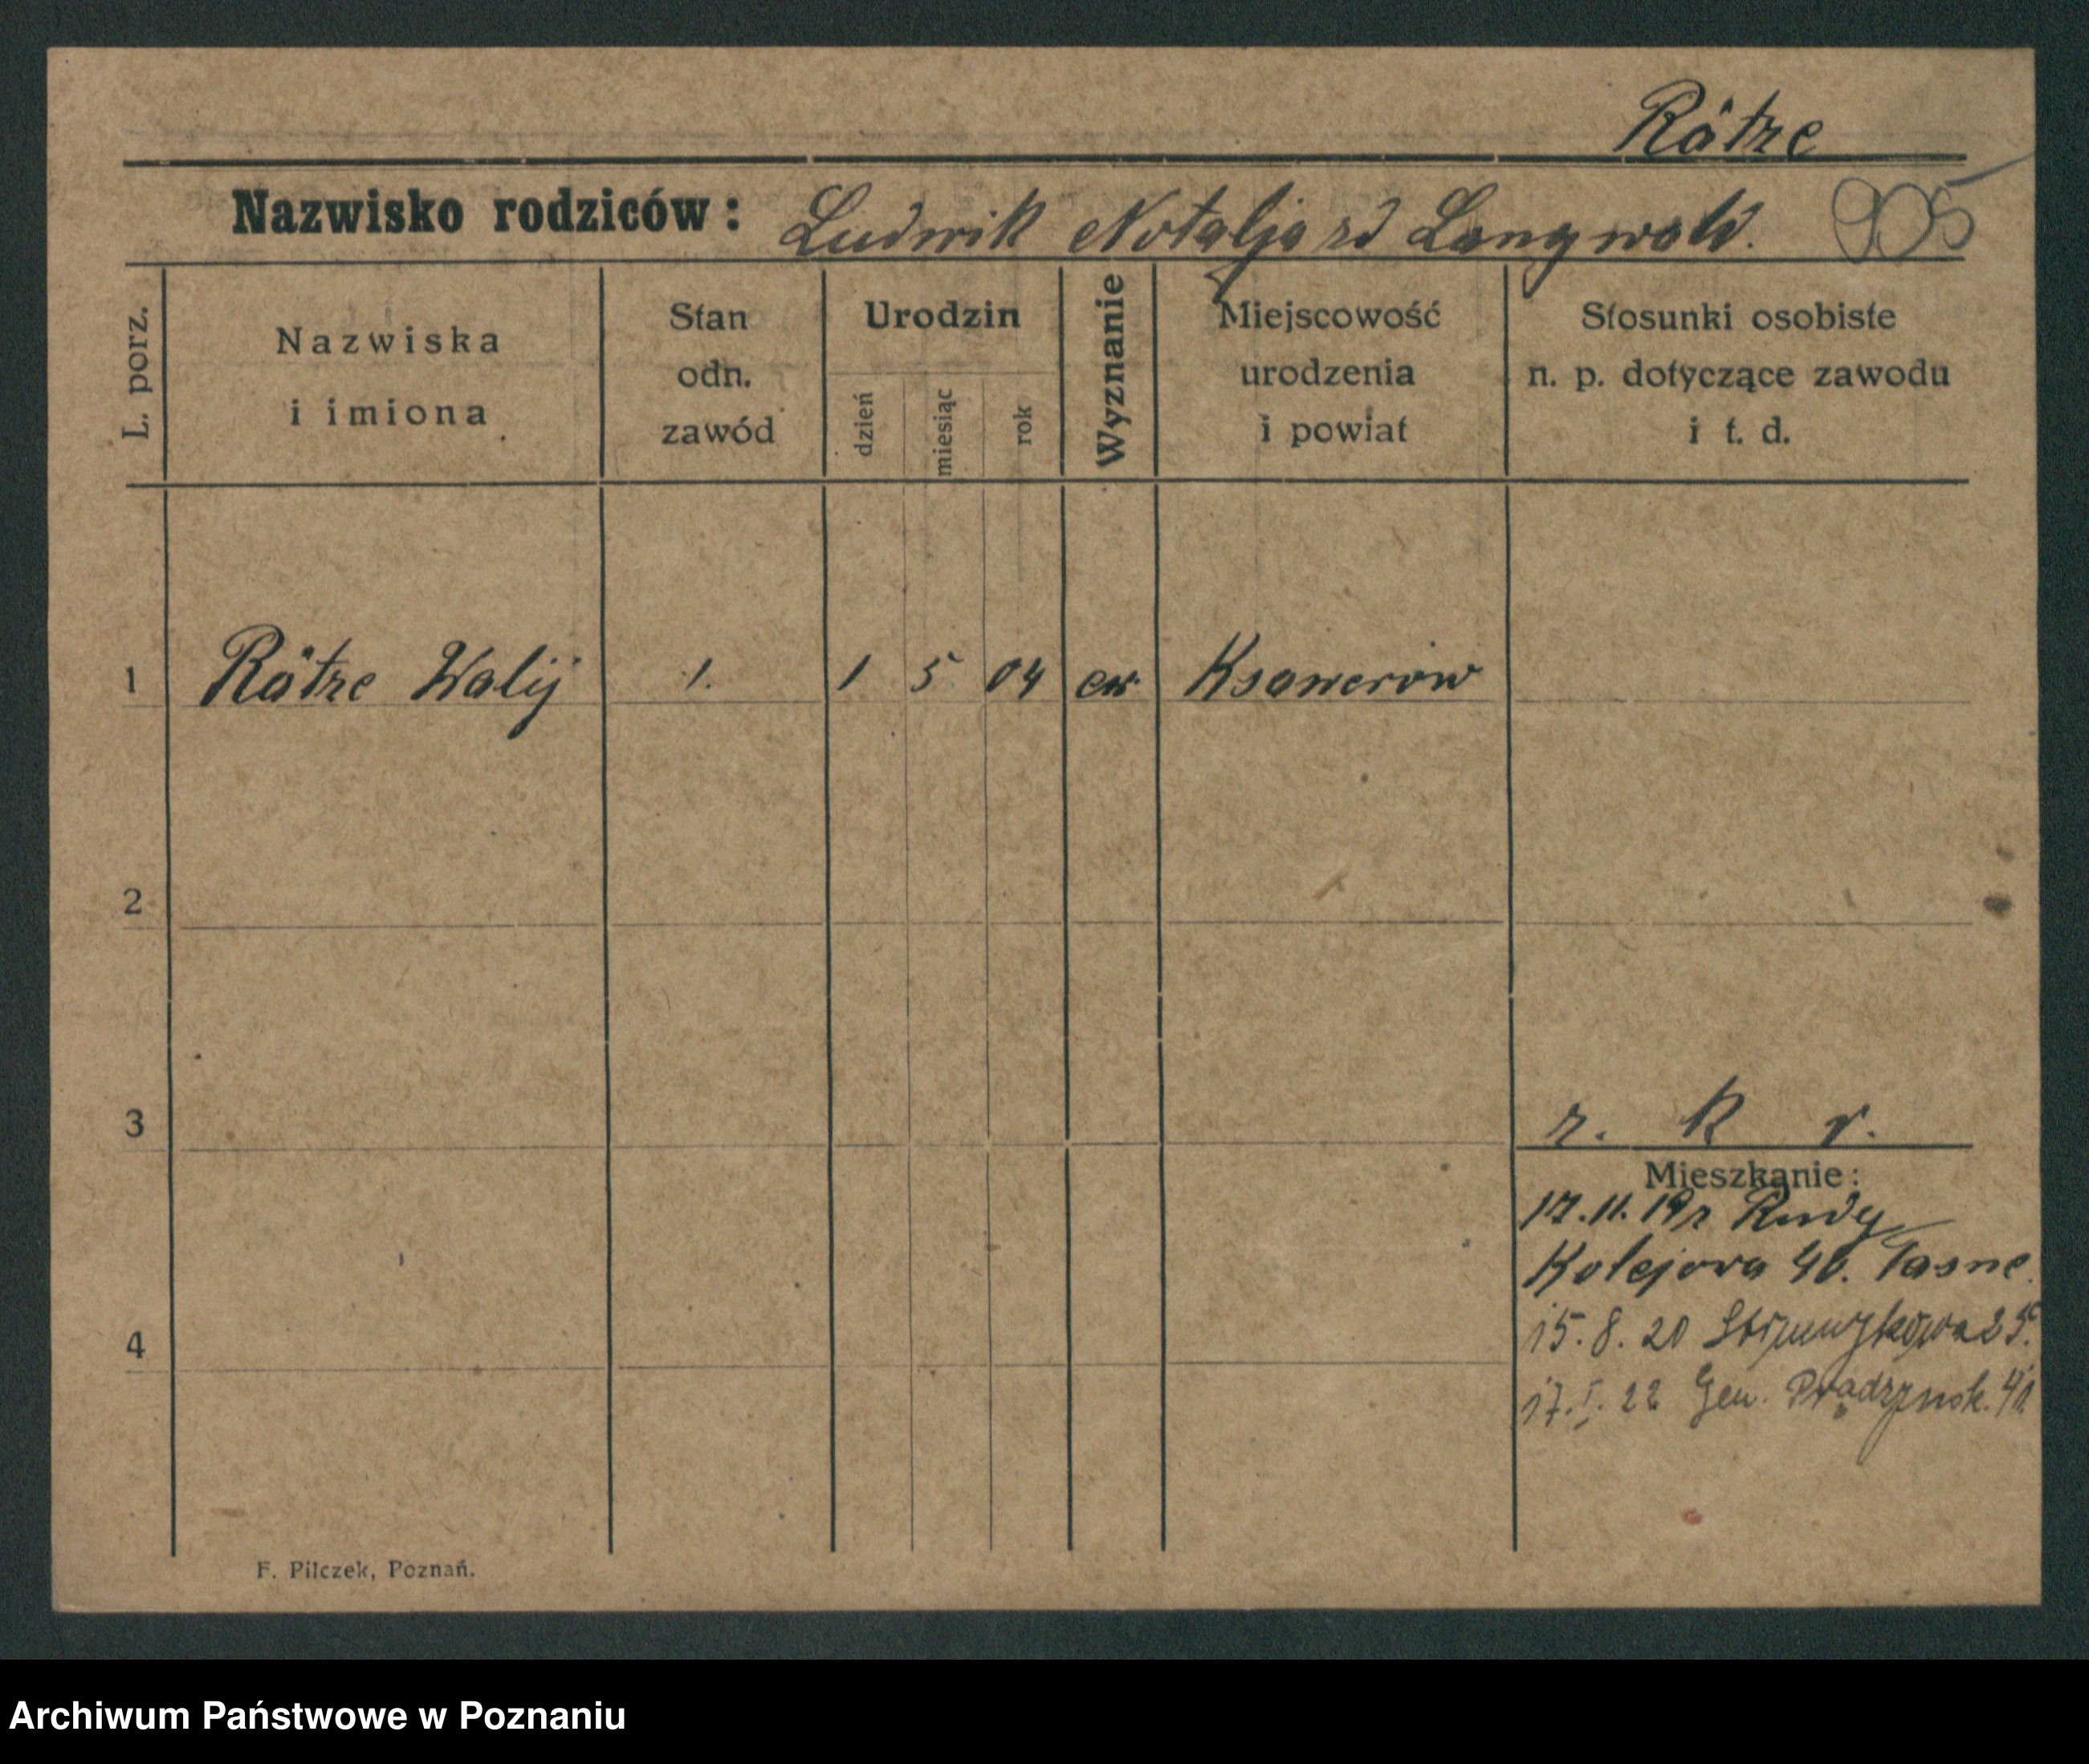 Rätze
Nazwisko rodziców: Ludwik Natalja zd Langwald. 905
L. porz.
Nazwiska
i imiona
Stan
odn.
zawód
Urodzin
dzień
miesiąc
rok
Wyznanie
Miejscowość
urodzenia
i powiat
Stosunki osobiste
n. p. dotyczące zawodu
i t. d.
1 Rätze Walij 1. 1 5 04 ew. Ksawerów
2
3
r. k r.
Mieszkanie:
17.11.19r Rudy
Kolejowa 46.
4
15.8.20 Strumykowa 25.
17.I.22 Gen. Prądzynsk. 41
F. Pilczek, Poznań.
Archiwum Państwowe w Poznaniu